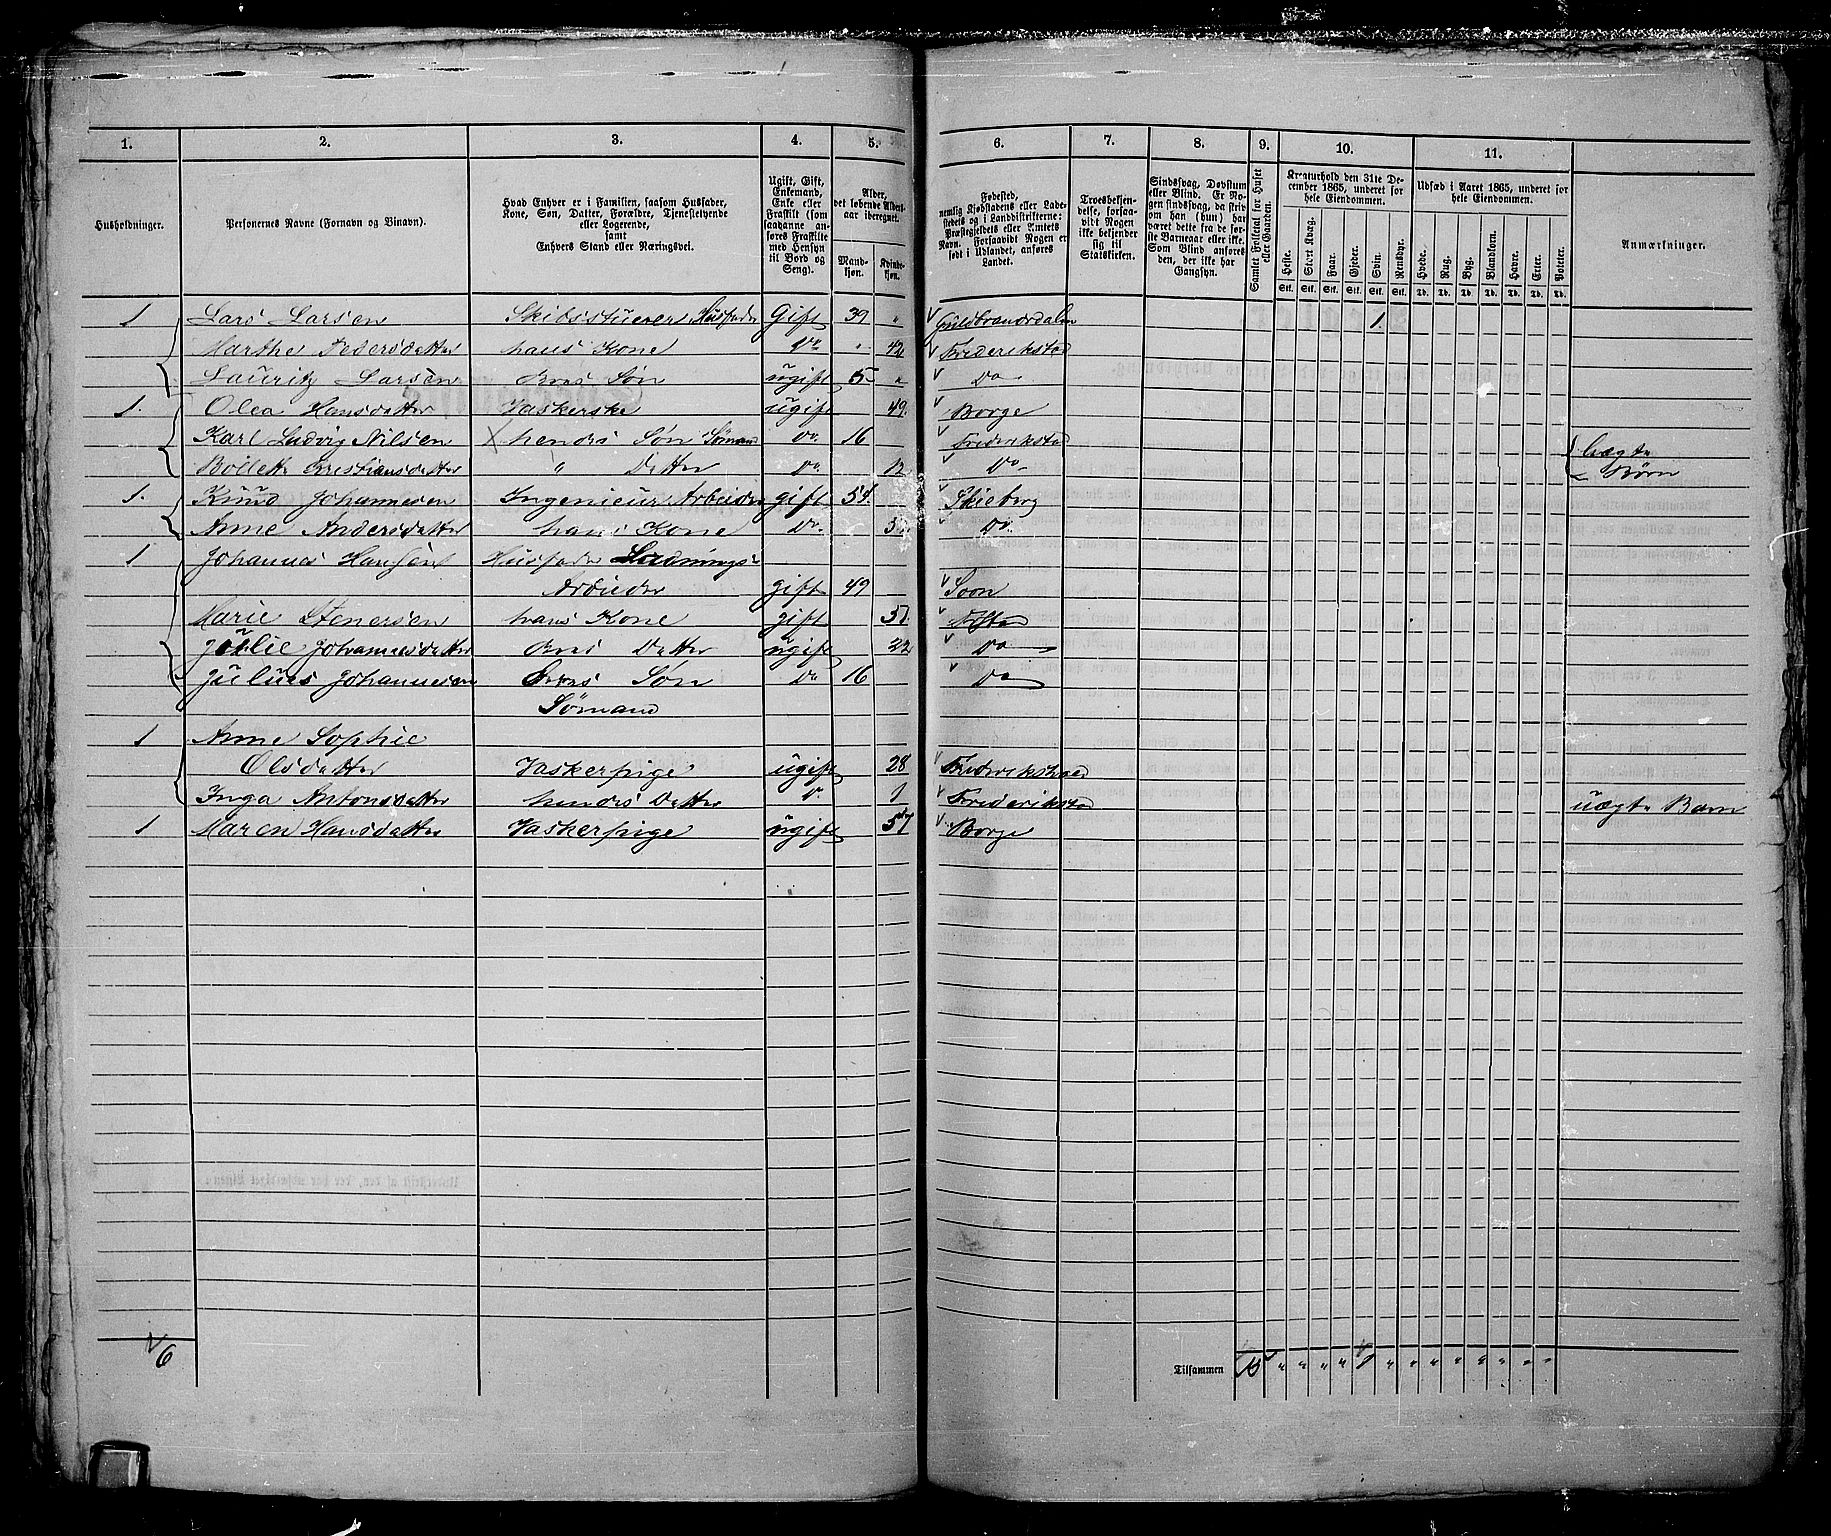 1. 2. 3. 4. 5. 6. 7. 8. 9. 10. 11.
Husholdninger.
Personernes Navne (Fornavn og Binavn).
Hvad Enhver er i Familien, saasom Husfader,
Kone, Søn, Datter, Forældre, Tjenestetyende
eller Logerende,
samt
Enhvers Stand eller Næringsvei.
Ugift, Gift,
Enkemand,
Enke eller
Fraskilt (som
saadanne an-
føres Fraskilte
med Hensyn
til Bord og
Seng).
Alder,
det løbende Alders-
aar iberegnet.
Mand-
kjøn.
Kvinde-
kjøn.
Fødested,
nemlig Kjøbstadens eller Lade-
stedets og i Landdistrikterne:
Præstegjeldets eller Amtets
Navn. Forsaavidt Nogen er
født i Udlandet, anføres
Landet.
Troesbekjen-
delse, forsaa-
vidt Nogen
ikke bekjender
sig til
Statskirken.
Sindssvag, Døvstum
eller Blind. Er No-
gen sindssvag, da skriv
om han (hun) har
været dette fra de før-
ste Barneaar eller ikke.
Som Blind anføres
den, der ikke har
Gangsyn.
Samlet Folketal for Huset
eller Gaarden.
Kreaturhold den 31te De-
cember 1865, underet for
hele Eiendommen.
Heste. Stort Kvæg. Faar. Gjeder. Svin. Rensdyr.
Stk. Stk. Stk. Stk. Stk. Stk.
Udsæd i Aaret 1865, underet for
hele Eiendommen.
Hvede. Rug. Byg. Blandkorn. Havre. Erter. Poteter.
Td. Td. Td. Td. Td. Td. Td.
Anmærkninger.
1 Lars Larsen Skibsstuerer Husfader Gift 39 " Guldbrandsdalen 1
Marthe Pedersdatter hans Kone Do " 42 Frederikstad
Lauritz Larsen Deres Søn ugift 5 " Do
1. Olea Hansdatter Vaskerske ugift 49. Borge
Karl Ludvig Nilsen hendes Søn Sømand Do 16 Frederikstad uægte
Bollette Kristiansdatter " Datter Do 12 Do Børn
1. Knud Johannesen Ingenieur Arbeider gift 54. Skieberg
Anne Andersdatter hans Kone Do Do
1 Johannes Hansen Husfader Ludnings-
Arbeider gift 49 Soon
Marie Stenersen hans Kone gift 51 Fstad
Julie Johannesdatter Deres Datter ugift 22 Do
Julius Johannesen Deres Søn Do 16 Do
Sømand
1 Anne Sophie
Olsdatter Vaskerpige ugift 28 Frederikshald
Inga Antonsdatter hendes Datter Do 1 Frederikstad uægte Barn
1 Maren Hansdatter Vaskerpige ugift 57 Borge
6
Tilsammen 15 " " " " 1 " " " " " " "